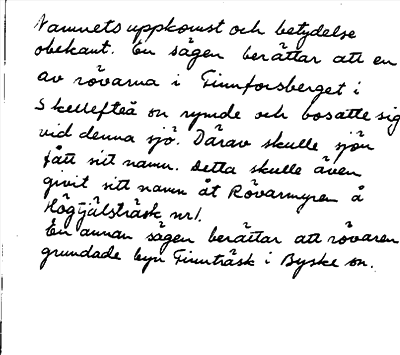 Namnets uppkomst och betydelse
obekant. En sägen berättar att en
av rövarna i Finnforsberget i
Skellefteå sn rymde och bosatte sig
vid denna sjö. Därav skulle sjön
fått sitt namn. Detta skulle även
givit sitt namn åt Rövarmyren å
Högtjälsträsk nr1.
En annan sägen berättar att rövaren
grundade byn Finnträsk i Byske sn.